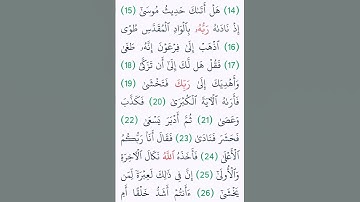 (14) هَلْ أَتَىٰكَ حَدِيثُ مُوسَىٰٓ (15)
إِذْ نَادَىٰهُ رَبُّهُۥ بِالْوَادِ الْمُقَدَّسِ طُوًى
(16) اَذْهَبْ إِلَىٰ فِرْعَوْنَ إِنَّهُۥ طَغَىٰ
(17) فَقُلْ هَل لَّكَ إِلَىٰٓ أَن تَزَكَّىٰ (18)
وَأَهْدِيَكَ إِلَىٰ رَبِّكَ فَتَخْشَىٰ (19)
فَأَرَىٰهُ الْآيَةَ الْكُبْرَىٰ (20) فَكَذَّبَ
وَعَصَىٰ (21) ثُمَّ أَدْبَرَ يَسْعَىٰ (22)
فَحَشَرَ فَنَادَىٰ (23) فَقَالَ أَنَا رَبُّكُمُ
الْأَعْلَىٰ (24) فَأَخَذَهُ اللَّهُ نَكَالَ الْآخِرَةِ
وَالْأُولَىٰٓ (25) إِنَّ فِي ذَٰلِكَ لَعِبْرَةً لِّمَن
يَخْشَىٰٓ (26) ءَأَنتُمْ أَشَدُّ خَلْقًا أَمِ